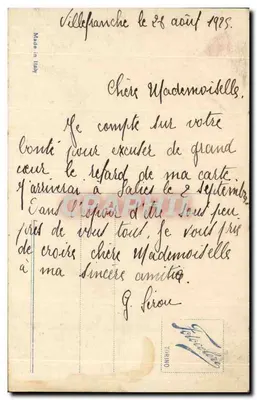 Villefranche le 28 août 1925.
Made in Italy
Chère Mademoiselle,
Je compte sur votre
bonté pour excuser de grand
cœur le retard de ma carte
J'arriverai à Salies le 2 Septembre
Dans l'espoir d'être sous peu
près de vous tous, je vous prie
de croire chère Mademoiselle
à ma sincère amitié
G Sirou
TORINO